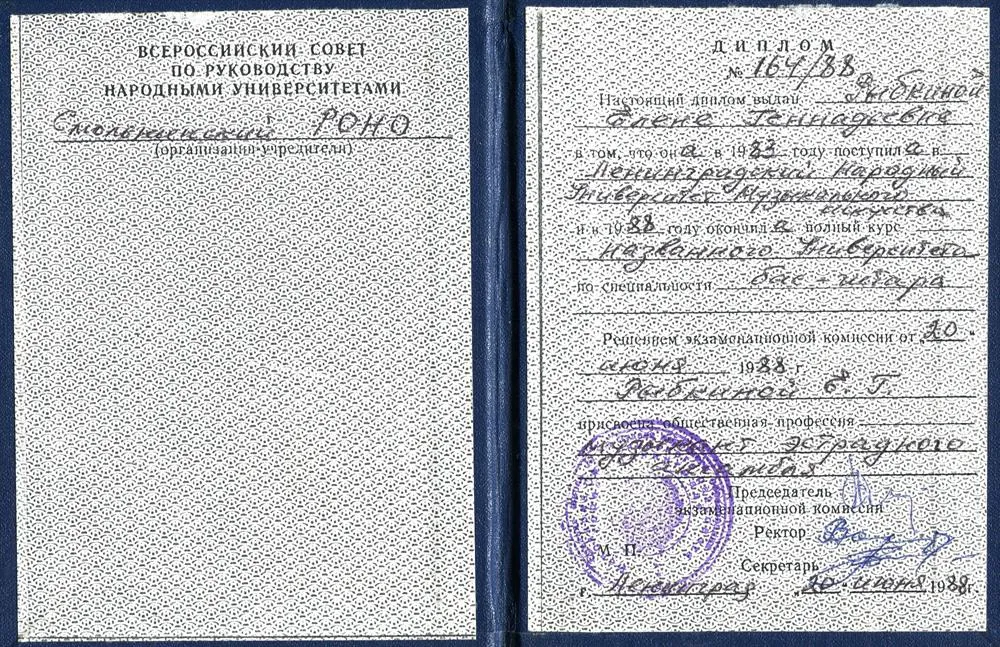 ВСЕРОССИЙСКИЙ СОВЕТ
ПО РУКОВОДСТВУ
НАРОДНЫМИ УНИВЕРСИТЕТАМИ
Смольнинский РОНО
(организация-учредители)
ДИПЛОМ
№ 164/88
Настоящий диплом выдан Рыбкиной
Елене Геннадьевне
в том, что она в 1983 году поступила в
Ленинградский Народный
Университет Музыкального
искусства
и в 1988 году окончила полный курс
названного Университета
по специальности бас-гитара
Решением экзаменационной комиссии от 20.
июня 1988 г
Рыбкиной Е. Г.
присвоена общественная профессия
музыкант эстрадного
ансамбля
Председатель
экзаменационной комиссии
Ректор
М. П.
Секретарь
г. Ленинград 20. июня 1988 г